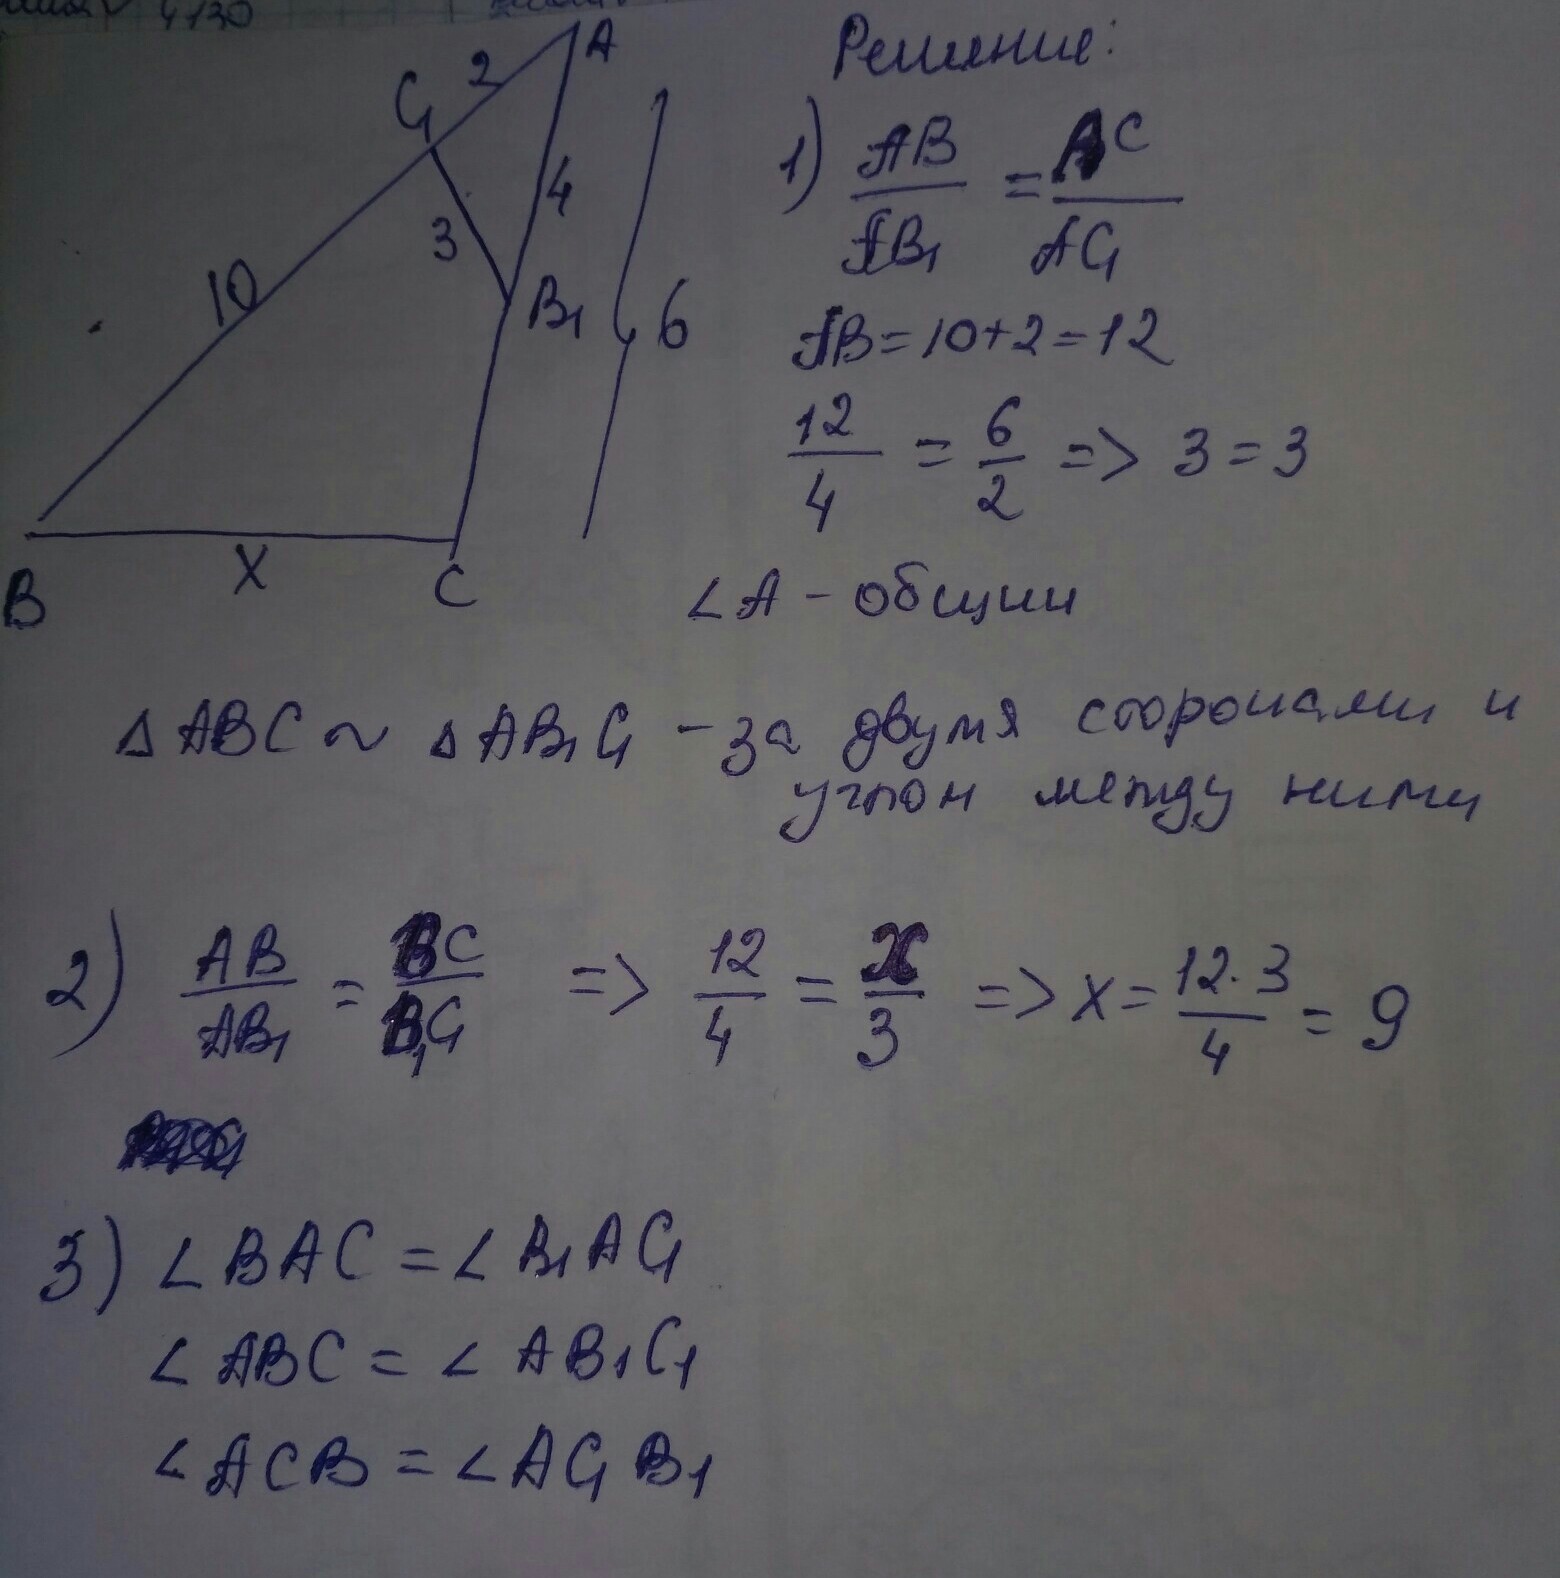 4130
A
2
C₁
4
3
10
B₁
6
X
B
C
Решение:
1) AB/AB₁ = AC/AC₁
AB = 10 + 2 = 12
12/4 = 6/2 => 3 = 3
∠A - общии
Δ ABC ~ Δ AB₁C₁ - за двумя сторонами и
углом между ними
2) AB/AB₁ = BC/B₁C₁ => 12/4 = x/3 => x = 12·3/4 = 9
3) ∠BAC = ∠B₁AC₁
∠ABC = ∠AB₁C₁
∠ACB = ∠AC₁B₁